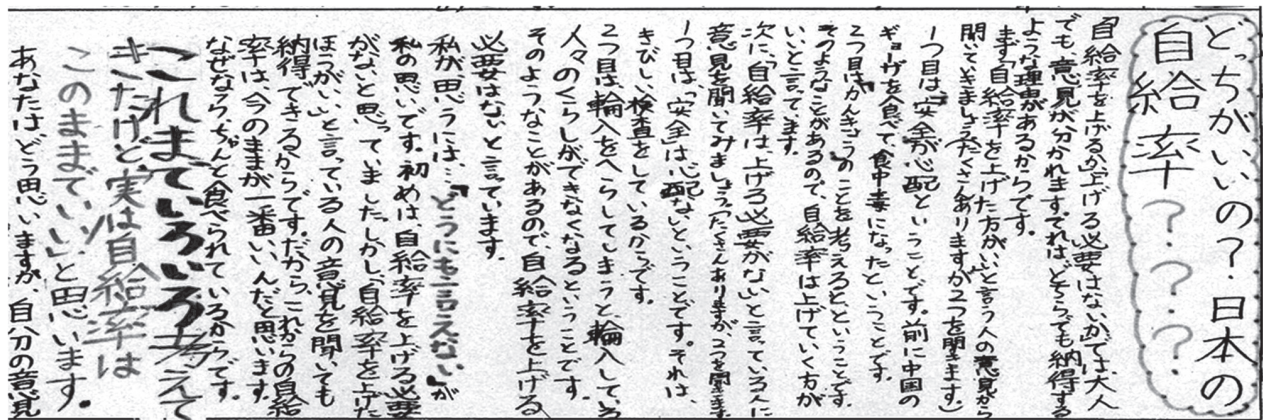 どっちがいいの？日本の
自給率？？？
自給率を上げるか上げる必要はないかでは大人
でも、意見が分かれます。それは、どちらでも納得する
ような理由があるからです。
まず「自給率を上げた方がいい」と言う人の意見から
聞いていきましょう（たくさんありますが2つを聞きます。）
1つ目は、"安全が心配"ということです。前に中国の
ギョーザを食べて、食中毒になったということです。
2つ目は、"かんきょう"のことを考えるとということです。
そのようなことがあるので、自給率は上げていく方が
いいと言ってます。
次に、「自給率は上げる必要がない」と言っている人に
意見を聞いてみましょう（たくさんありますが2つを聞きます
1つ目は、「安全」は心配ないということです。それは、
きびしい検査をしているからです。
2つ目は、輪入をへらしてしまうと、輪入している
人々のくらしができなくなるということです。
そのようなことがあるので、自給率を上げる
必要はないと言っています。
私が思うには…「どうにも言えない」が
私の思いです。初めは、自給率を上げる必要
がないと思っていました。しかし、自給率を上げた
ほうがいいと言っている人の意見を聞いても
納得できるからです。だから、これからの自給
率は、今のままが一番いいんだと思います。
なぜなら、ちゃんと食べられているからです。
これまでいろいろ考えて
きたけど、実は自給率は
このままでいいと思います。
あなたは、どう思いますか、自分の意見